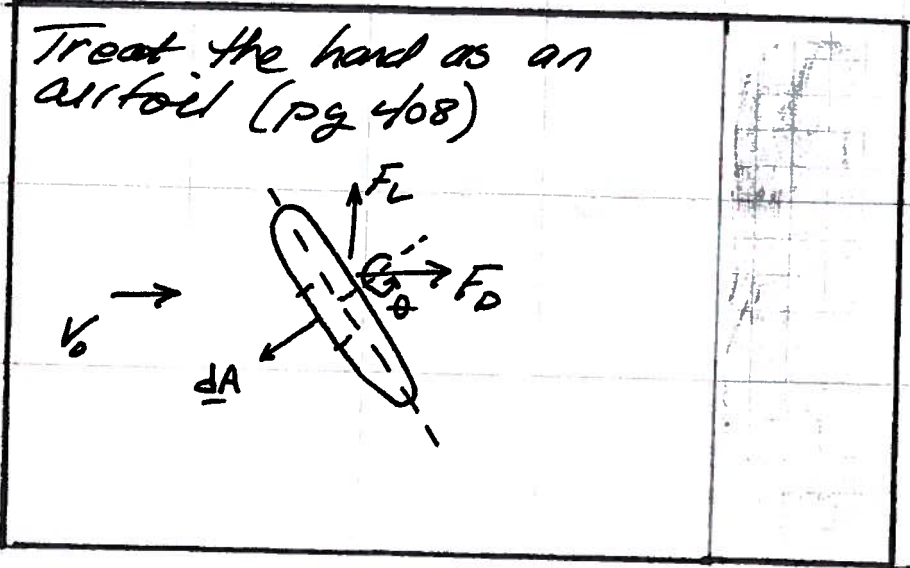 Treat the hand as an
airfoil (pg 408)
F_L
F_D
θ
V_o
dA